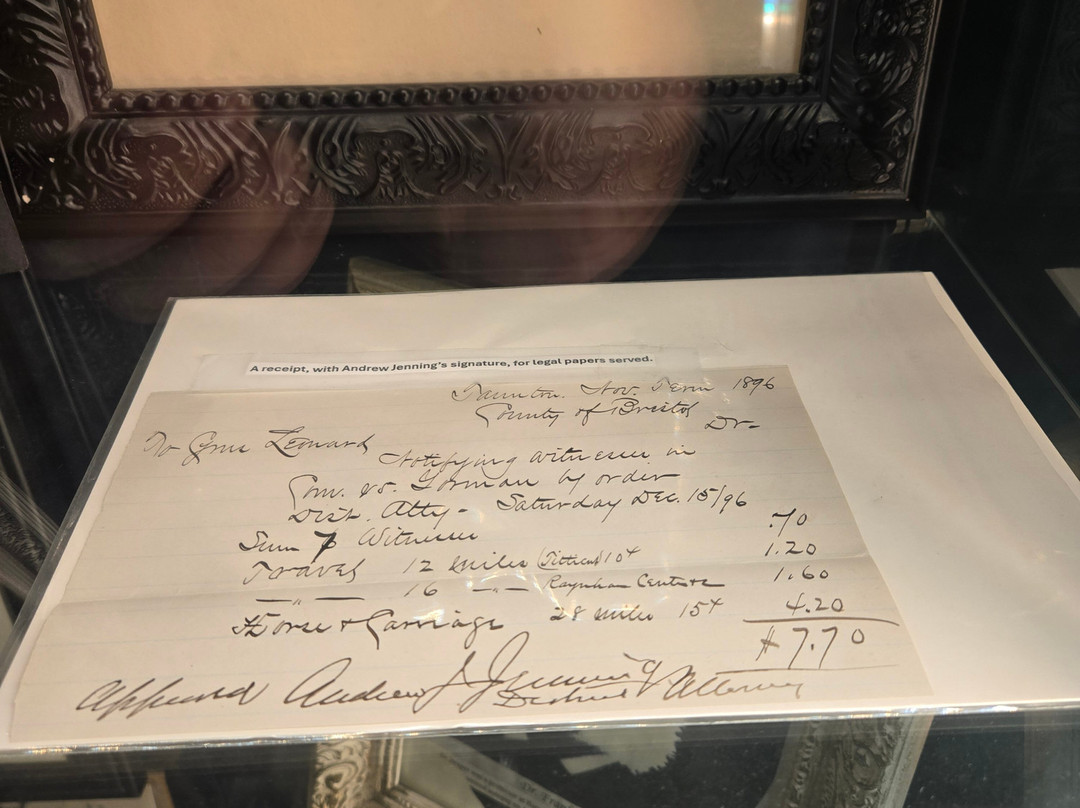 A receipt, with Andrew Jenning's signature, for legal papers served.
Taunton. Nov. Term 1896
County of Bristol
Dr-
To Leonard
Notifying witnesses in
Com. vs. Gorman by order
Dist. Atty - Saturday Dec. 15/96
Sum 7 Witnesses .70
Travel 12 miles 10¢ 1.20
— " — 16 — " — Raynham Centre 1.60
Horse & Carriage 28 miles 15¢ 4.20
$7.70
Approved Andrew J Jennings
District Attorney